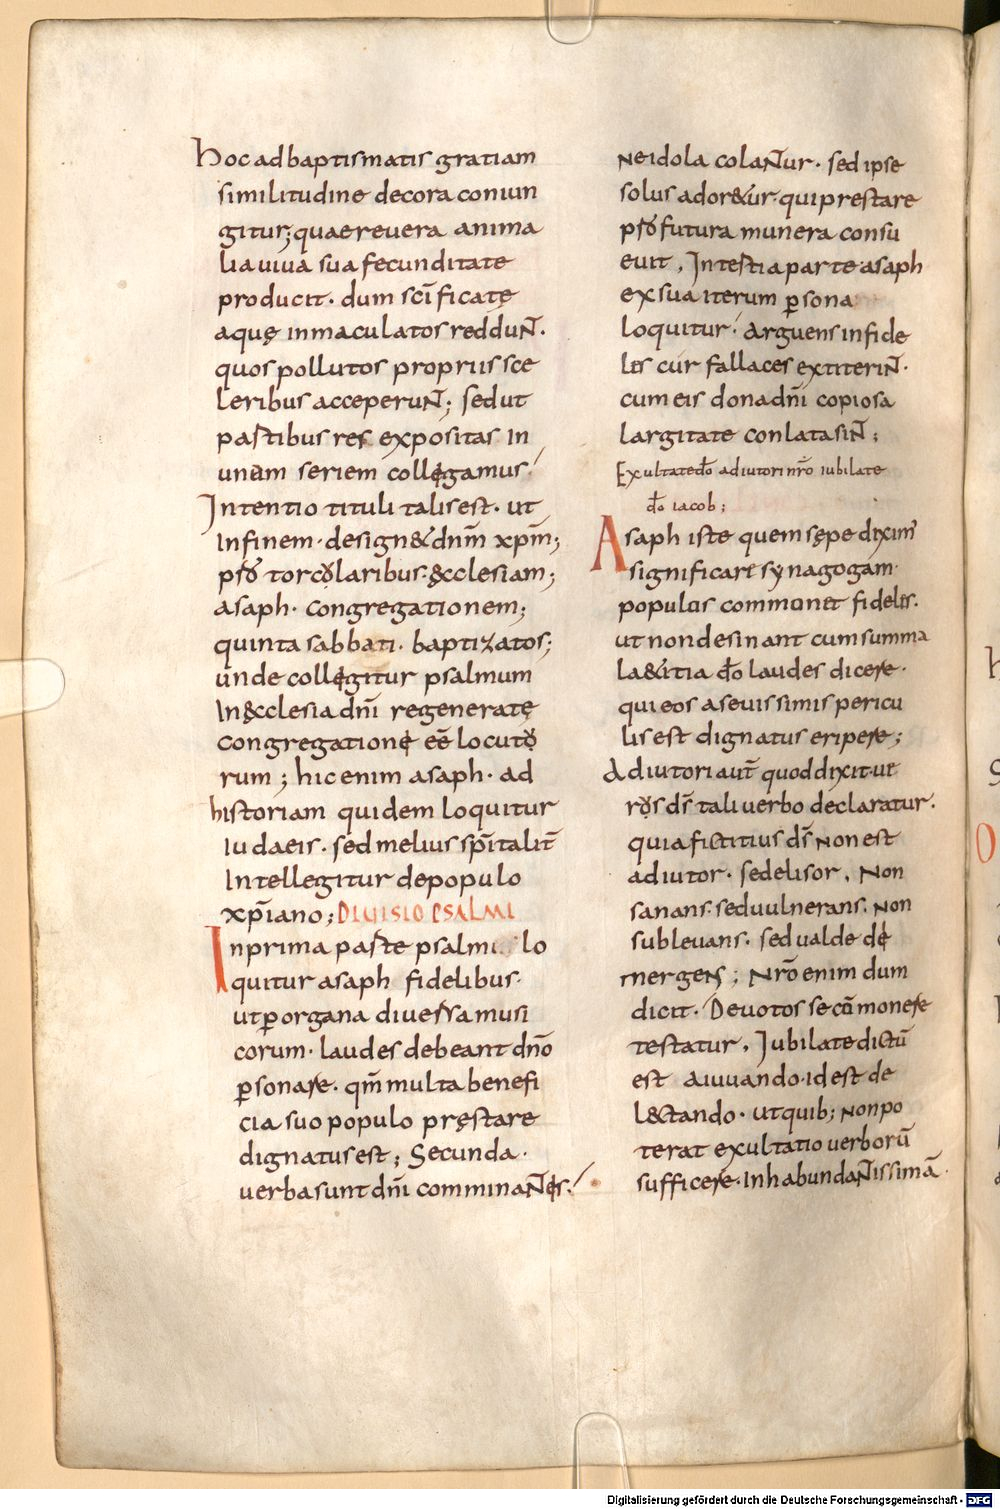 hoc ad baptismatis gratiam
similitudine decora coniun
gitur; quae reuera anima
lia uiua sua fecunditate
producit. dum scīficatę
aquę inmaculatos reddunt.
quos pollutos propriis sce
leribus acceperunt; sed ut
partibus res expositas in
unam seriem collegamus.
Intentio tituli talis est. ut
In finem. design& dnm̄ xpm̄;
p̄s torcolaribus. ęcclesiam;
asaph. congregationem;
quinta sabbati. baptizatos;
unde collegitur psalmum
In ęcclesia dnī regeneratę
congregatione eē locuto
rum; hic enim asaph. ad
historiam quidem loquitur
Iudaeis. sed melius spīt alit̄
Intellegitur de populo
xp̄iano; DIUISIO PSALMI
In prima parte psalmi lo
quitur asaph fidelibus.
ut ꝑ organa diuersa musi
corum. laudes debeant dn̄o
ꝑsonare. qm̄ multa benefi
cia suo populo pręstare
dignatus est; Secunda.
uerba sunt dnī comminantes.
Ne idola colantur. sed ipse
solus ador&ur. qui prestare
p̄s futura munera consu
euit. In tertia parte asaph
ex sua iterum ꝑsona
loquitur. arguens infide
les cur fallaces extiterint.
cum eis dona dnī copiosa
largitate conlata sint;
Exultate dō adiutori nrō iubilate
dō iacob;
Asaph iste quem sępe diximus
significare synagogam
populus communet fidelis.
ut non desinant cum summa
la&itia dō laudes dicere.
qui eos a seuissimis pericu
lis est dignatus eripere;
Adiutori aut̄ quod dixit. ut
ros ds̄ tali uerbo declaratur.
quia fictitius ds̄ Non est
adiutor. sed elisor. Non
sanans. sed uulnerans. Non
subleuans. sed ualde de
mergens; Nrō enim dum
dicit. Deuotos se cōmonere
testatur. Iubilate dictū
est a iuuando. id est de
l&tando. ut quib; non po
terat exultatio uerborū
sufficere. In habundantissimā.
Digitalisierung gefördert durch die Deutsche Forschungsgemeinschaft - DFG